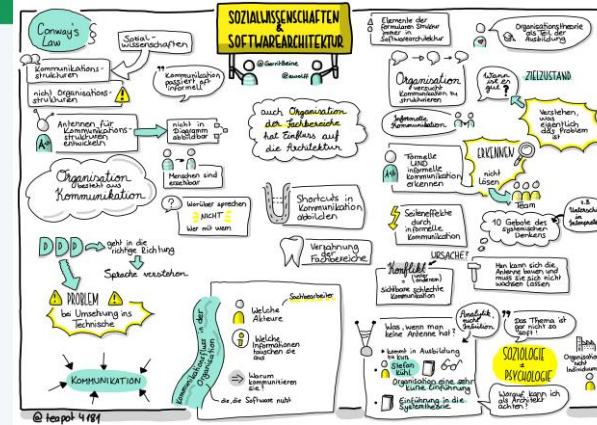 Conway's
Law
Sozial-
wissenschaften
Kommunikations-
strukturen
nicht Organisations-
strukturen
Kommunikation
passiert oft
informell
Antennen für
Kommunikations-
strukturen
entwickeln
nicht in
Diagramm
abbildbar
Menschen sind
ersetzbar
Organisation
besteht aus
Kommunikation
Worüber sprechen
NICHT
Wer mit wem
DDD
geht in die
richtige Richtung
Sprache verstehen
PROBLEM
bei Umsetzung ins
Technische
KOMMUNIKATION
@teapot4181
SOZIALWISSENSCHAFTEN
&
SOFTWAREARCHITEKTUR
@GerritBeine
@ewolff
auch Organisation
der Fachbereiche
hat Einfluss auf
die Architektur
Shortcuts in
Kommunikation
abbilden
Verzahnung
der
Fachbereiche
Kommunikationsfluss in der
Organisation
Sachbearbeiter
Welche
Akteure
Welche
Informationen
tauschen sie
aus
Warum
kommunizieren
sie?
die, die Software nutzt
Elemente der
formalen Struktur
immer in
Softwarearchitektur
Organisationstheorie
als Teil der
Ausbildung
Organisation
versucht
Kommunikation zu
strukturieren
Wann
ist es
gut?
ZIELZUSTAND
Informelle
Kommunikation
Verstehen,
was
eigentlich
das Problem
ist
Formelle
UND
informelle
Kommunikation
erkennen
ERKENNEN
nicht
Lösen
Team
Seiteneffekte
durch
informelle
Kommunikation
z.B.
in
10 Gebote des
systemischen
Denkens
URSACHE?
Konflikt
(unter
anderem)
sichtbare schlechte
Kommunikation
Man kann sich die
Antenne bauen und
muss sie sich nicht
wachsen lassen
Was, wenn man
keine Antenne hat?
Analytik,
nicht
Intuition
Das Thema ist
gar nicht so
soft!
kommt in Ausbildung
zu kurz
Stefan
Kühl
Organisation eine sehr
kurze Einführung
Einführung in die
Systemtheorie
SOZIOLOGIE
≠
PSYCHOLOGIE
Worauf kann ich
als Architekt
achten?